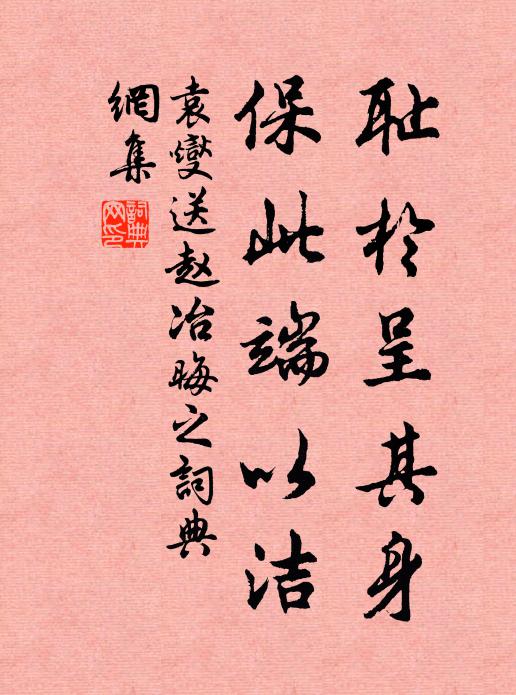 耻於呈其身
保此端以洁
袁燮送赵冶晦之詞典
網集
詞典
网印